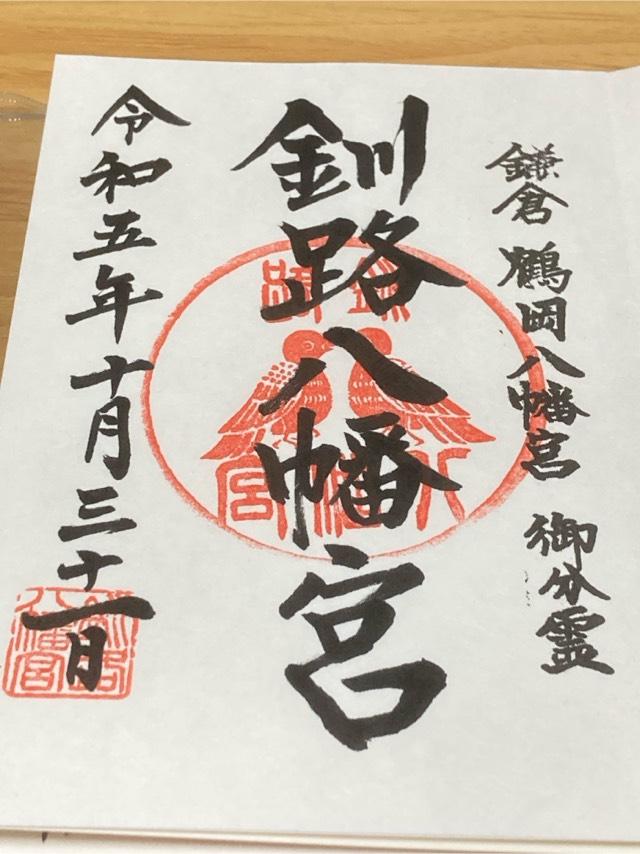 鎌倉 鶴岡八幡宮 御分霊
釧路八幡宮
令和五年十月三十一日
釧路
八幡
宮
釧路
八幡宮